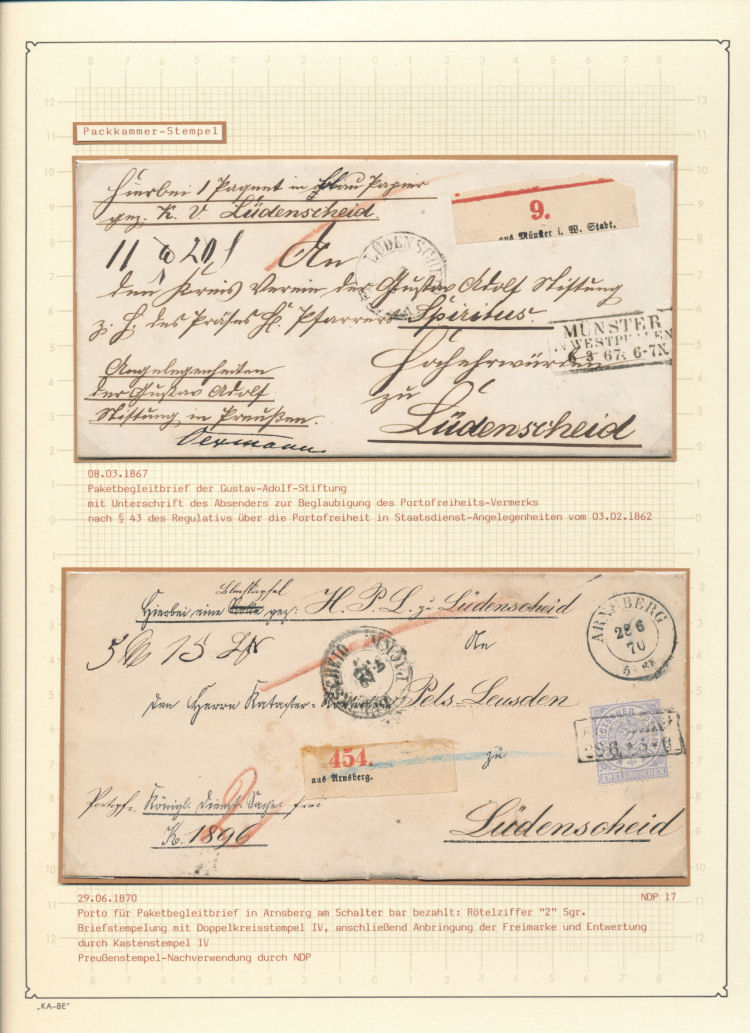 Packkammer-Stempel
Hierbei 1 Paquet in blau Papier
gez. K. V. Lüdenscheid.
9.
aus Münster i. W. Stadt.
11 20
An
LÜDENSCHEID
den Kreis Verein der Gustav Adolf Stiftung
z. H. des Präses H. Pfarrers Spiritus.
MÜNSTER
IN WESTPHALEN
8 3 67. 6-7N.
Hochehrwürden
Angelegenheiten
der Gustav Adolf
Stiftung in Preußen.
zu
Lüdenscheid
08.03.1867
Paketbegleitbrief der Gustav-Adolf-Stiftung
mit Unterschrift des Absenders zur Beglaubigung des Portofreiheits-Vermerks
nach § 43 des Regulativs über die Portofreiheit in Staatsdienst-Angelegenheiten vom 03.02.1862
Hierbei eine gez: H. P. L. zu Lüdenscheid
ARNSBERG
28 6
70
5 15
An
den Herrn Kataster- Pels-Leusden
ZWEI GROSCHEN
454.
aus Arnsberg.
zu
Königl. Dienst Sache frei
N. 1896
2
Lüdenscheid
29.06.1870
NDP 17
Porto für Paketbegleitbrief in Arnsberg am Schalter bar bezahlt: Rötelziffer "2" Sgr.
Briefstempelung mit Doppelkreisstempel IV, anschließend Anbringung der Freimarke und Entwertung
durch Kastenstempel IV
Preußenstempel-Nachverwendung durch NDP
„KA-BE"